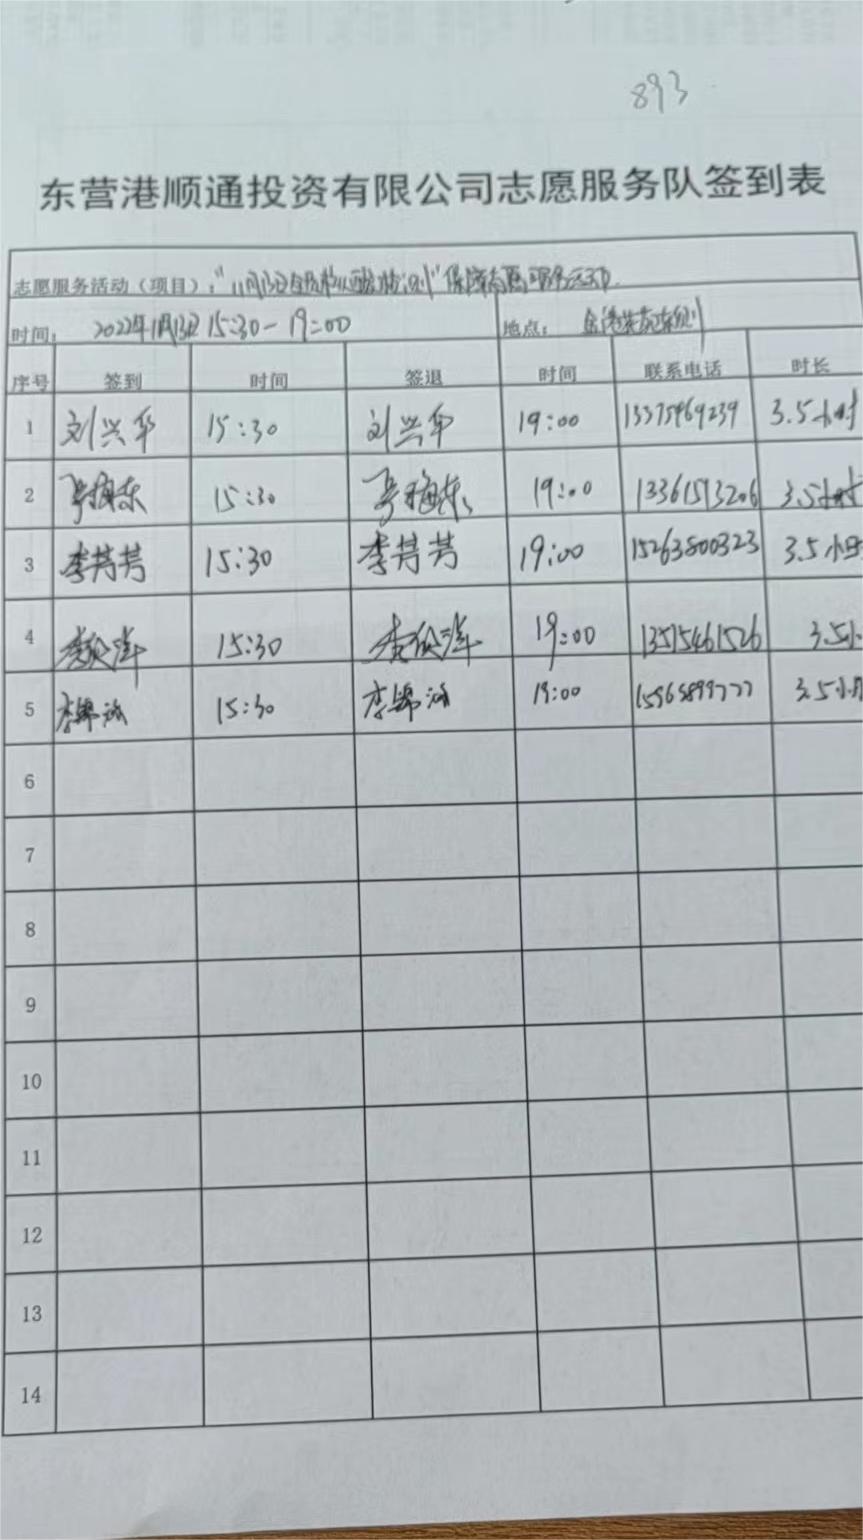 893
东营港顺通投资有限公司志愿服务队签到表
志愿服务活动（项目）："11月13日全员核酸检测"保障志愿服务活动
时间：2022年11月13日 15:30-19:00 地点：
序号 签到 时间 签退 时间 联系电话 时长
1 刘兴华 15:30 刘兴华 19:00 13375469239 3.5小时
2 15:30 19:00 13361513206 3.5小时
3 李芳芳 15:30 李芳芳 19:00 15263800323 3.5小时
4 15:30 19:00 13515461526 3.5小
5 李锦涵 15:30 李锦涵 19:00 15965899777 3.5小时
6
7
8
9
10
11
12
13
14